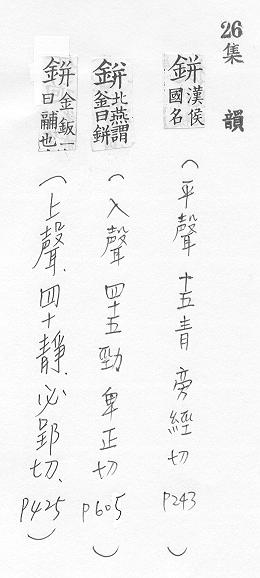 26
集韻
鉼漢侯國名
（平聲 十五青 旁經切 P243）
鉼北燕謂釜曰鉼
（入聲 四十五勁 卑正切 P605）
鉼金鈑一曰鬴也
（上聲．四十靜．必郢切．P425）